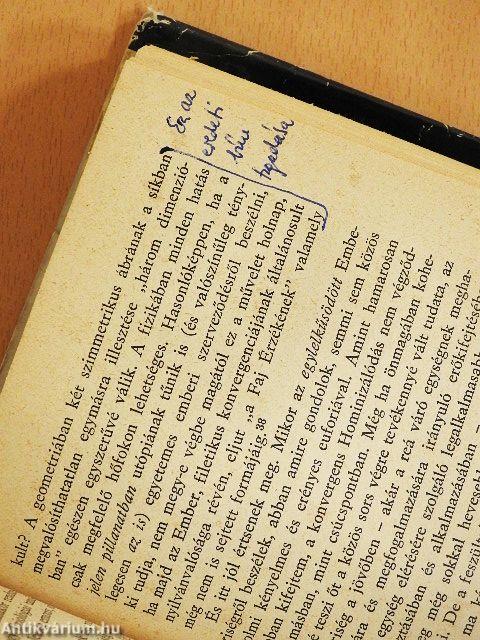 Ez az
eredeti
bűn
tagadása
kult? A geometriában két szimmetrikus ábrának a síkban
megvalósíthatatlan egymásra illesztése „három dimenzió-
ban” egészen egyszerűvé válik. A fizikában minden hatás
csak megfelelő hőfokon lehetséges. Hasonlóképpen, ha a
jelen pillanatban utópiának tűnik is (és valószínűleg tény-
legesen az is) egyetemes emberi szerveződésről beszélni,
ki tudja, nem megy-e végbe magától ez a művelet holnap,
ha majd az Ember, filetikus konvergenciájának általánosult
nyilvánvalósága révén, eljut „a Faj Érzékének” valamely
még nem is sejtett formájáig.³⁸
És itt jól értsenek meg. Mikor az egylelkűsödött Embe-
riségről beszélek, abban amire gondolok, semmi sem közös
olmi kényelmes és erényes eufóriával. Amint hamarosan
ban kifejtem, a konvergens Hominizálódás nem végződ-
másban, mint csúcspontban. Még ha önmagában kohe-
teszi őt a közös sors végre tevékennyé vált tudata, az
iség a jövőben – akár a reá váró egységnek megha-
ára és megfogalmazására irányuló erőkifejtésében
egység elérésére szolgáló legalkalmasabb
tásában és alkalmazásában –
még sokkal hevesebb
i. De a feszült
Antikvárium.hu